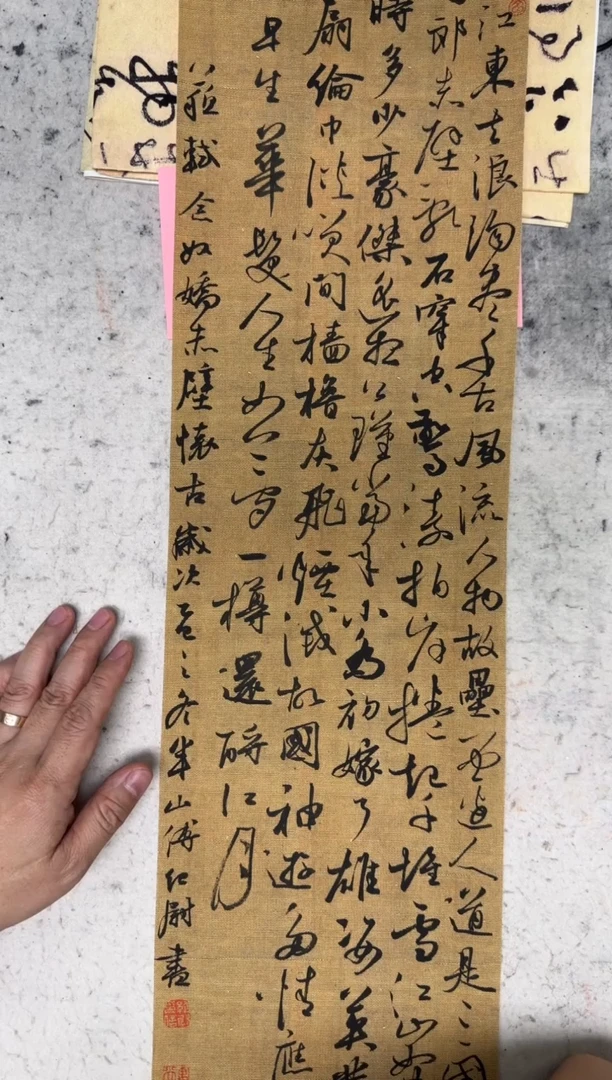 江東去浪淘盡千古風流人物故壘西邊人道是三國
郎赤壁亂石穿空驚濤拍岸捲起千堆雪江山如
時多少豪傑遙想公瑾當年小喬初嫁了雄姿英發
扇綸巾談笑間檣櫓灰飛煙滅故國神遊多情應
早生華髮人生如夢一樽還酹江月
蘇軾念奴嬌赤壁懷古歲次之冬半山傅紅尉書